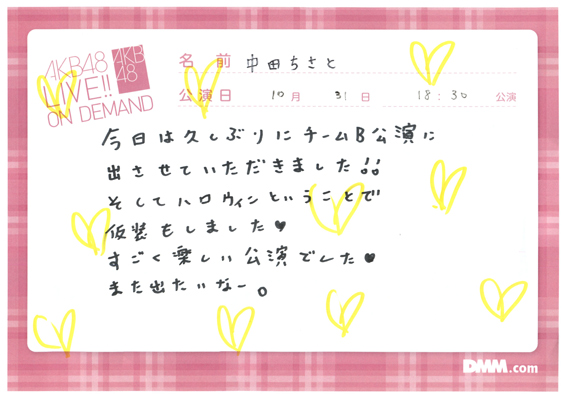 AKB48
LIVE!!
ON DEMAND
AKB
48
名前 中田ちさと
公演日 10月 31日 18:30 公演
今日は久しぶりにチームB公演に
出させていただきました!!
そしてハロウィンということで
仮装もしました♥
すごく楽しい公演でした♥
また出たいなー。
DMM.com